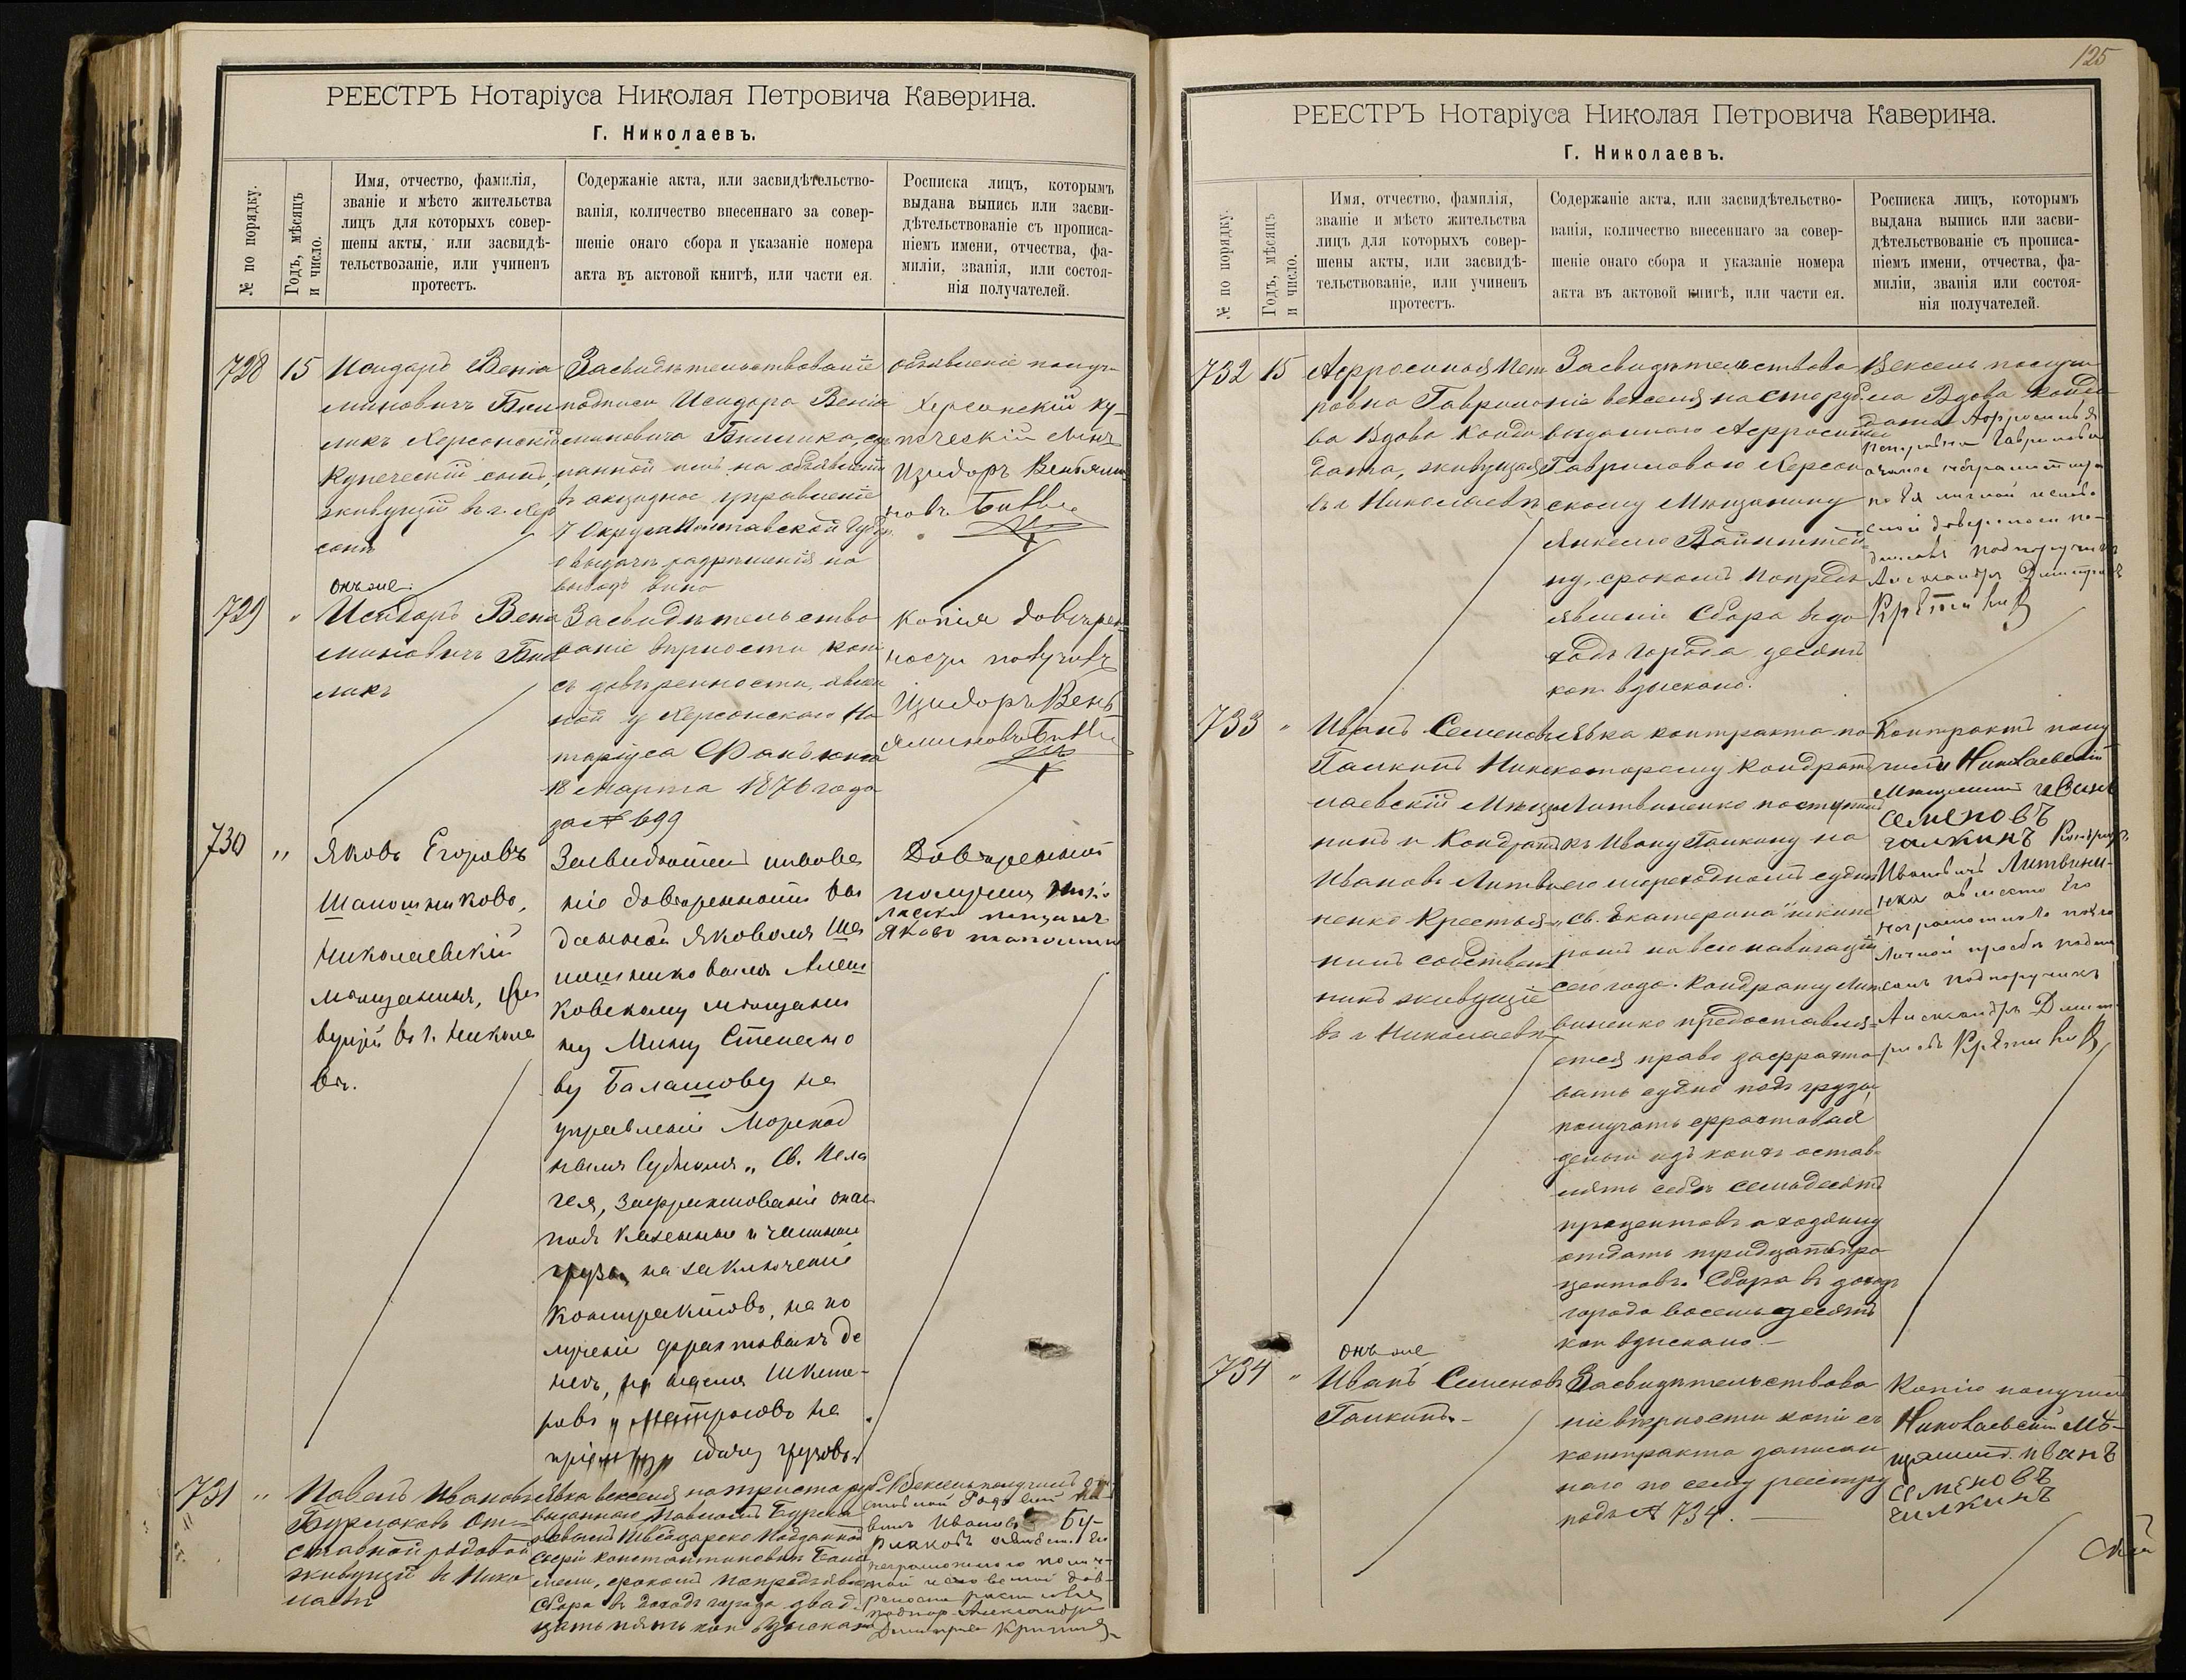 РЕЕСТРЪ Нотаріуса Николая Петровича Каверина.
Г. Николаевъ.
№ по порядку.
Годъ, мѣсяцъ
и число.
Имя, отчество, фамилія,
званіе и мѣсто жительства
лицъ для которыхъ совер-
шены акты, или засвидѣ-
тельствованіе, или учиненъ
протестъ.
Содержаніе акта, или засвидѣтельство-
ванія, количество внесеннаго за совер-
шеніе онаго сбора и указаніе номера
акта въ актовой книгѣ, или части ея.
Росписка лицъ, которымъ
выдана выпись или засви-
дѣтельствованіе съ прописа-
ніемъ имени, отчества, фа-
миліи, званія, или состоя-
нія получателей.
728
15
Исидоръ Веніа
миновичъ Бли
Херсонскій
Купеческій сынъ,
живущій въ г. Хер
сонѣ
Засвидѣтельствованіе
подписи Исидора Веніа
миновича
на объявленіи
въ акцизное управленіе
7 Округа Полтавской Губ
о выдачѣ разрѣшенія на
вывозъ вина
объявленіе получ
Херсонскій ку-
печескій сынъ
Изидоръ Веньями
новъ
729
"
онъ же
Исидоръ Вени
миновичъ Бли
Засвидѣтельство
ваніе вѣрности коп
съ довѣренности, явлен
ной у Херсонскаго Но
таріуса
18 Марта 1876 года
за № 699
Копію довѣрен
ности получилъ
Изидоръ Вень
яминовъ
730
"
Яковъ Егоровъ
Шапошниковъ,
Николаевскій
мѣщанинъ, жи
вущій въ г. Никола
евѣ.
Засвидѣтельствова
ніе довѣренности вы
данной Яковомъ Ша
пошниковымъ Алеш
ковскому мѣщани
ну Мину Степано
ву Балашову на
управленіе Мореход
нымъ Судномъ „Св. Пела
гея, зафрахтованіе онаго
подъ казенные и частные
грузы, на заключеніе
контрактовъ, на по
лученіе фрахтовыхъ де
негъ, на наемъ Шкипе-
ровъ и Матросовъ на
пріемъ и сдачу грузовъ.
Довѣренность
получилъ Нико
лаевск мещанинъ
Яковъ шапошник
731
"
Павелъ Ивановъ
Бурлаковъ От-
ставной рядовой
живущій въ Нико
лаевѣ
Явка векселя на триста руб.
выданнаго Павломъ Бурла
ковымъ Швейцарско Подданной
Софіи Константиновнѣ
срокомъ по предъявл
Сбора въ доходъ города двад
цать пять коп взыскано
Вексель получилъ от
ставной Рядовой Па
велъ Ивановъ Бу-
рлаковъ
неграмотнаго по лич
ной и словесной дов-
ренности росписался
подпор. Александръ
Дмитріевъ
125
РЕЕСТРЪ Нотаріуса Николая Петровича Каверина.
Г. Николаевъ.
№ по порядку.
Годъ, мѣсяцъ
и число.
Имя, отчество, фамилія,
званіе и мѣсто жительства
лицъ для которыхъ совер-
шены акты, или засвидѣ-
тельствованіе, или учиненъ
протестъ.
Содержаніе акта, или засвидѣтельство-
ванія, количество внесеннаго за совер-
шеніе онаго сбора и указаніе номера
акта въ актовой книгѣ, или части ея.
Росписка лицъ, которымъ
выдана выпись или засви-
дѣтельствованіе съ прописа-
ніемъ имени, отчества, фа-
миліи, званія или состоя-
нія получателей.
732
15
Афросинья Пет
ровна Гаврило
ва Вдова Конду
ктора, живущая
въ г Николаевѣ
Засвидѣтельствова
ніе векселя на сто руб
выданнаго Афросиньей
Гавриловою Херсон
скому Мѣщанину
Янкелю Вайнштей
ну, срокомъ по предъ
явленіи Сбора въ до
ходъ города десять
коп взыскано.
Вексель получи
ла Вдова
Афросинья
Петровна Гаврилова
по Ея личной и слове
сной довѣренности по-
подпоручикъ
Александръ Дмитріевъ
733
"
Иванъ Семеновъ
Галкинъ Нико
лаевскій Мѣща
нинъ и Кондратъ
Ивановъ Литви
ненко Крестья-
нинъ собствен
никъ живущіе
въ г Николаевѣ
Явка контракта по
которому Кондратъ
Литвиненко поступилъ
къ Ивану Галкину на
его мореходномъ суднѣ
„Св. Екатерина" шкипе
ромъ на всю навигацію
сего года. Кондрату Лит
виненко предоставля-
ется право зафрахто
вать судно подъ грузы,
получать фрахтовыя
деньги изъ коихъ остав-
лять себѣ семьдесятъ
процентовъ а хозяину
отдать тридцать про
центовъ. Сбора въ доходъ
города восемьдесятъ
коп взыскано.
Контрактъ полу
чили Николаевскій
Мѣщанинъ иванъ
семеновъ
галкинъ Кондратъ
Ивановъ Литвинен-
ко а вместо его
неграмотнаго по его
личной просьбѣ подпи
салъ подпоручикъ
Александръ Дмит
ріевъ
734
"
онъ же
Иванъ Семеновъ
Галкинъ.
Засвидѣтельствова
ніе вѣрности копіи съ
контракта записан
наго по сему реестру
подъ № 734.
Копію получилъ
Николаевскій мѣ-
щанинъ иванъ
семеновъ
галкинъ